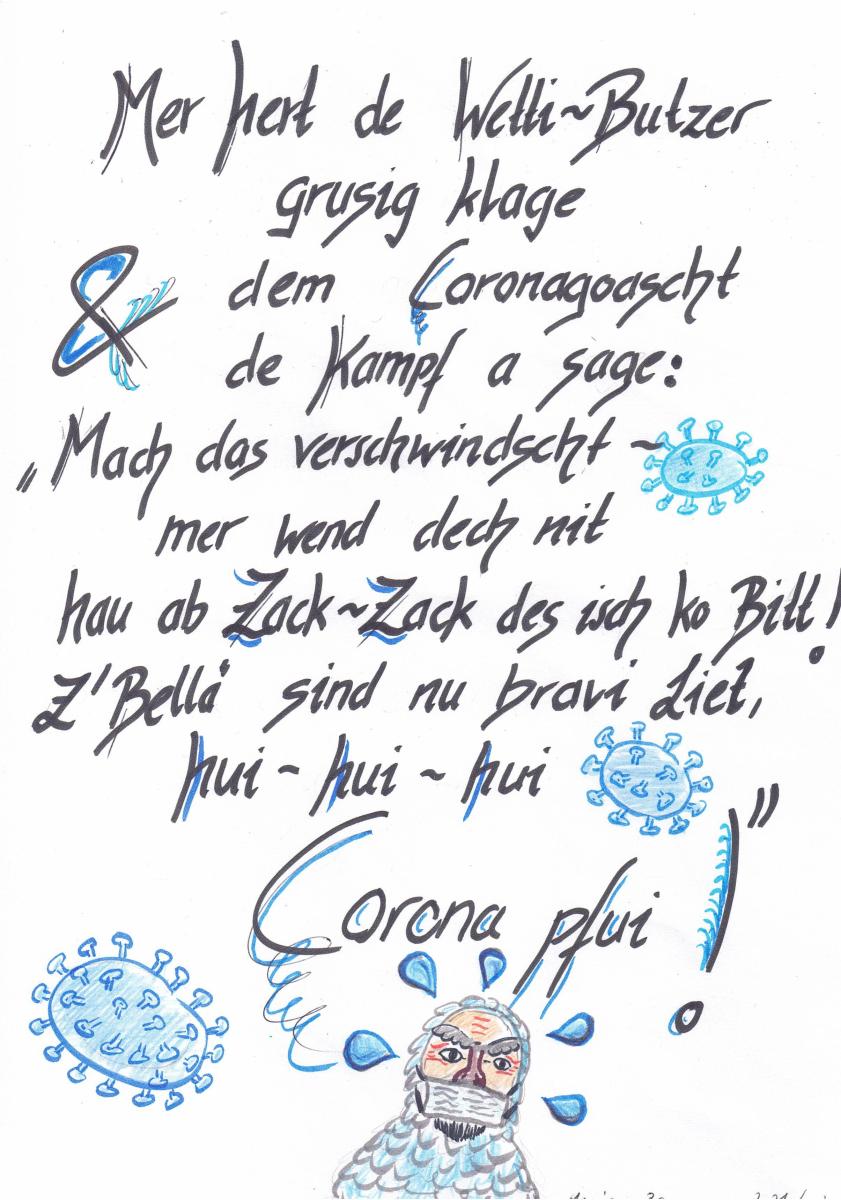 Mer hert de Wetti~Butzer
grusig klage
& dem Coronagoascht
de Kampf a sage:
„Mach das verschwindscht ~
mer wend dech nit
hau ab Zack~Zack des isch ko Bitt!
Z'Bellä sind nu bravi Liet,
hui ~ hui ~ hui
Corona pfui!"